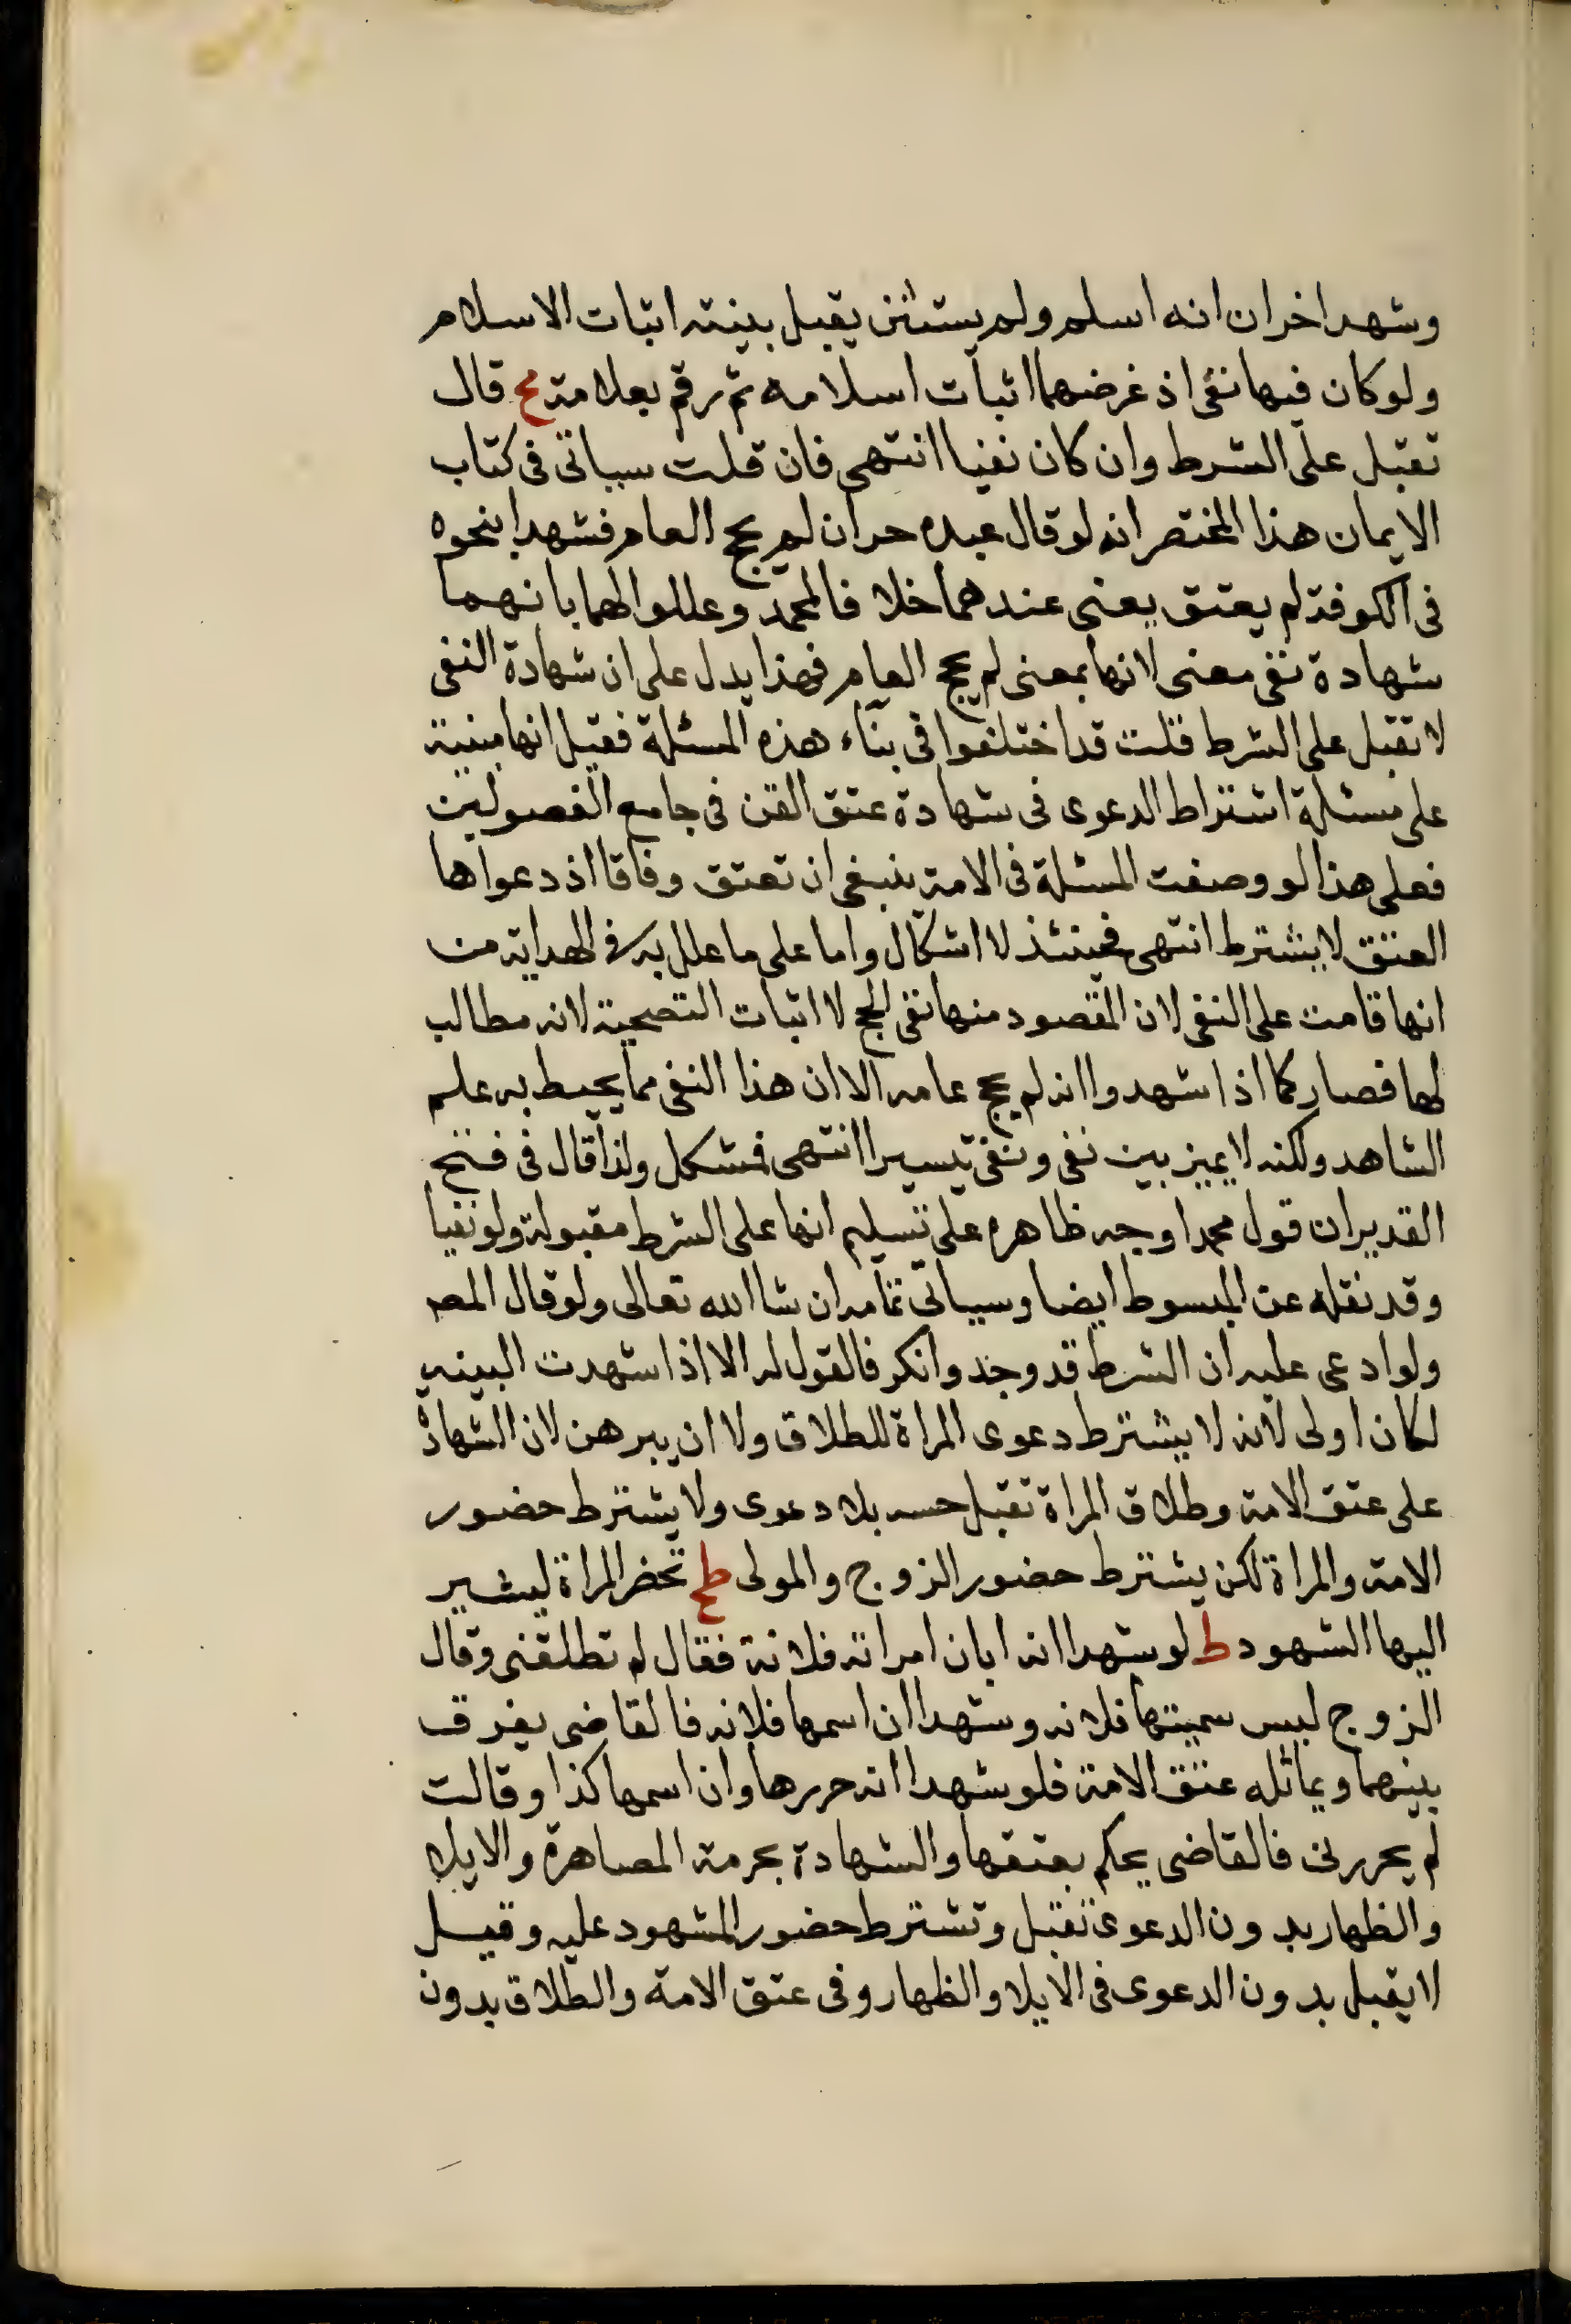 وشهد اخران انه اسلم ولم يستثن يقبل بينته اثبات الاسلام
ولو كان فيها نفى اذ غرضهما اثبات اسلامه ثم رقم بعلامة مح قال
تقبل على الشرط وان كان نفيا انتهى فان قلت سياتى فى كتاب
الايمان هذا المختصر انه لو قال عبده حر ان لم يحج العام فشهدا بنحره
فى الكوفة لم يعتق يعنى عندهما خلافا لمحمد وعللوا لهما بانهما
شهادة نفى معنى لانها بمعنى لم يحج العام فهذا يدل على ان شهادة النفى
لا تقبل على الشرط قلت قد اختلفوا فى بناء هذه المسئلة فقيل انها مبنية
على مسئلة اشتراط الدعوى فى شهادة عتق القن فى جامع الفصولين
فعلى هذا لو وصفت المسئلة فى الامة ينبغى ان تعتق وفاقا اذ دعواها
العتق لا يشترط انتهى فحينئذ لا اشكال واما على ما علل به فى الهداية من
انها قامت على النفى لان المقصود منها نفى الحج لا اثبات التضحية لانه مطالب
لها فصار كما اذا شهدوا انه لم يحج عامه الا ان هذا النفى مما يحيط به علم
الشاهد ولكنه لا يميز بين نفى ونفى تيسيرا انتهى فمشكل ولذا قال فى فتح
القدير ان قول محمد اوجه ظاهره على تسليم انها على الشرط مقبولة ولو نفيا
وقد نقله عن المبسوط ايضا وسياتى تمامه ان شا الله تعالى ولو قال المص
ولو ادعى عليه ان الشرط قد وجد وانكر فالقول له الا اذا شهدت البينه
لكان اولى لانه لا يشترط دعوى المراة للطلاق ولا ان يبرهن لان الشهادة
على عتق الامة وطلاق المراة تقبل حسه بلا دعوى ولا يشترط حضور
الامة والمراة لكن يشترط حضور الزوج والمولى طح تحضر المراة ليشير
اليها الشهود ط لو شهدا انه ابان امراته فلانة فقال لم تطلقنى وقال
الزوج ليس سميتها فلانه وشهدا ان اسمها فلانه فالقاضى يفرق
بينهما ويماثله عتق الامة فلو شهدا انه حررها وان اسمها كذا وقالت
لم يحررنى فالقاضى يحكم بعتقها والشهادة بحرمة المصاهرة والايلا
والظهار بدون الدعوى تقبل وتشترط حضور المشهود عليه وقيل
لا يقبل بدون الدعوى فى الايلا والظهار وفى عتق الامة والطلاق بدون